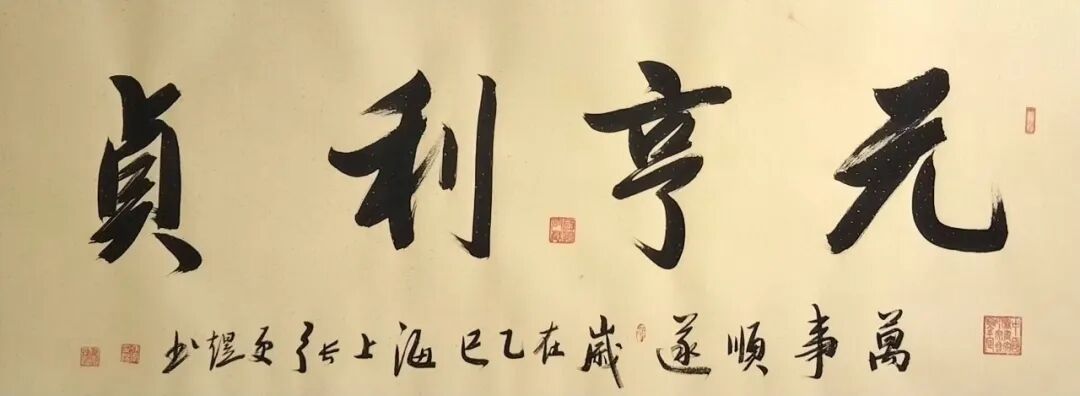 元亨利貞
萬事順遂歲在乙巳海上張更煜书